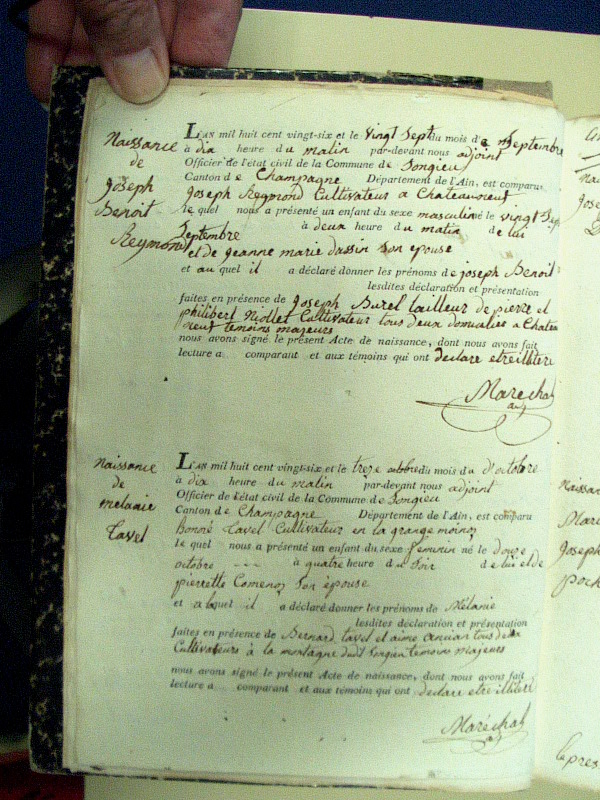 Naissance
de
joseph
Benoit
Reymond
L'AN mil huit cent vingt-six et le vingt sept du mois de Septembre
à dix heure du matin par-devant nous adjoint
Officier de l'état civil de la Commune de Songieu
Canton de Champagne Département de l'Ain, est comparu
Joseph Reymond Cultivateur a Chateauneuf
le quel nous a présenté un enfant du sexe masculin né le vingt Sept
Septembre à deux heure du matin de lui
et de jeanne marie dassin son epouse
et au quel il a déclaré donner les prénoms de joseph Benoit
lesdites déclaration et présentation
faites en présence de Joseph Burel tailleur de pierre et
philibert Niollet Cultivateur tous deux domiciliés a Chateau
neuf temoins majeurs
nous avons signé le présent Acte de naissance, dont nous avons fait
lecture a comparant et aux témoins qui ont declare etre illitere
Marechal
adj
Naissance
de
melanie
tavel
L'AN mil huit cent vingt-six et le treze octobre du mois du d'octobre
à dix heure du matin par-devant nous adjoint
Officier de l'état civil de la Commune de Songieu
Canton de Champagne Département de l'Ain, est comparu
Honoré tavel Cultivateur en la grange
le quel nous a présenté un enfant du sexe feminin né le douze
octobre à quatre heure du Soir de lui et de
pierrette son épouse
et a la quel il a déclaré donner les prénoms de Mélanie
lesdites déclaration et présentation
faites en présence de Bernard tavel et aimé ancian tous deux
Cultivateurs à la montagne dudt Songieu temoins majeurs
nous avons signé le présent Acte de naissance, dont nous avons fait
lecture a comparant et aux témoins qui ont declare etre illiteré
Maréchal
adj
joseph
Naissance
Marie
joseph
poch
le pres